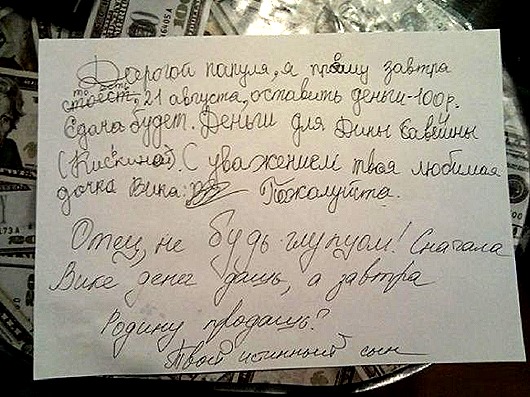 Дорогой папуля, я прошу завтра
то есть, 21 августа, оставить деньги-100р.
Сдача будет. Деньги для Дины Савёйны
(Кискиной). С уважением твоя любимая
дочка Вика. Пожалуйста.
Отец, не будь глупцом! Сначала
Вике денег дашь, а завтра
Родину продашь?
Твой истинный сын